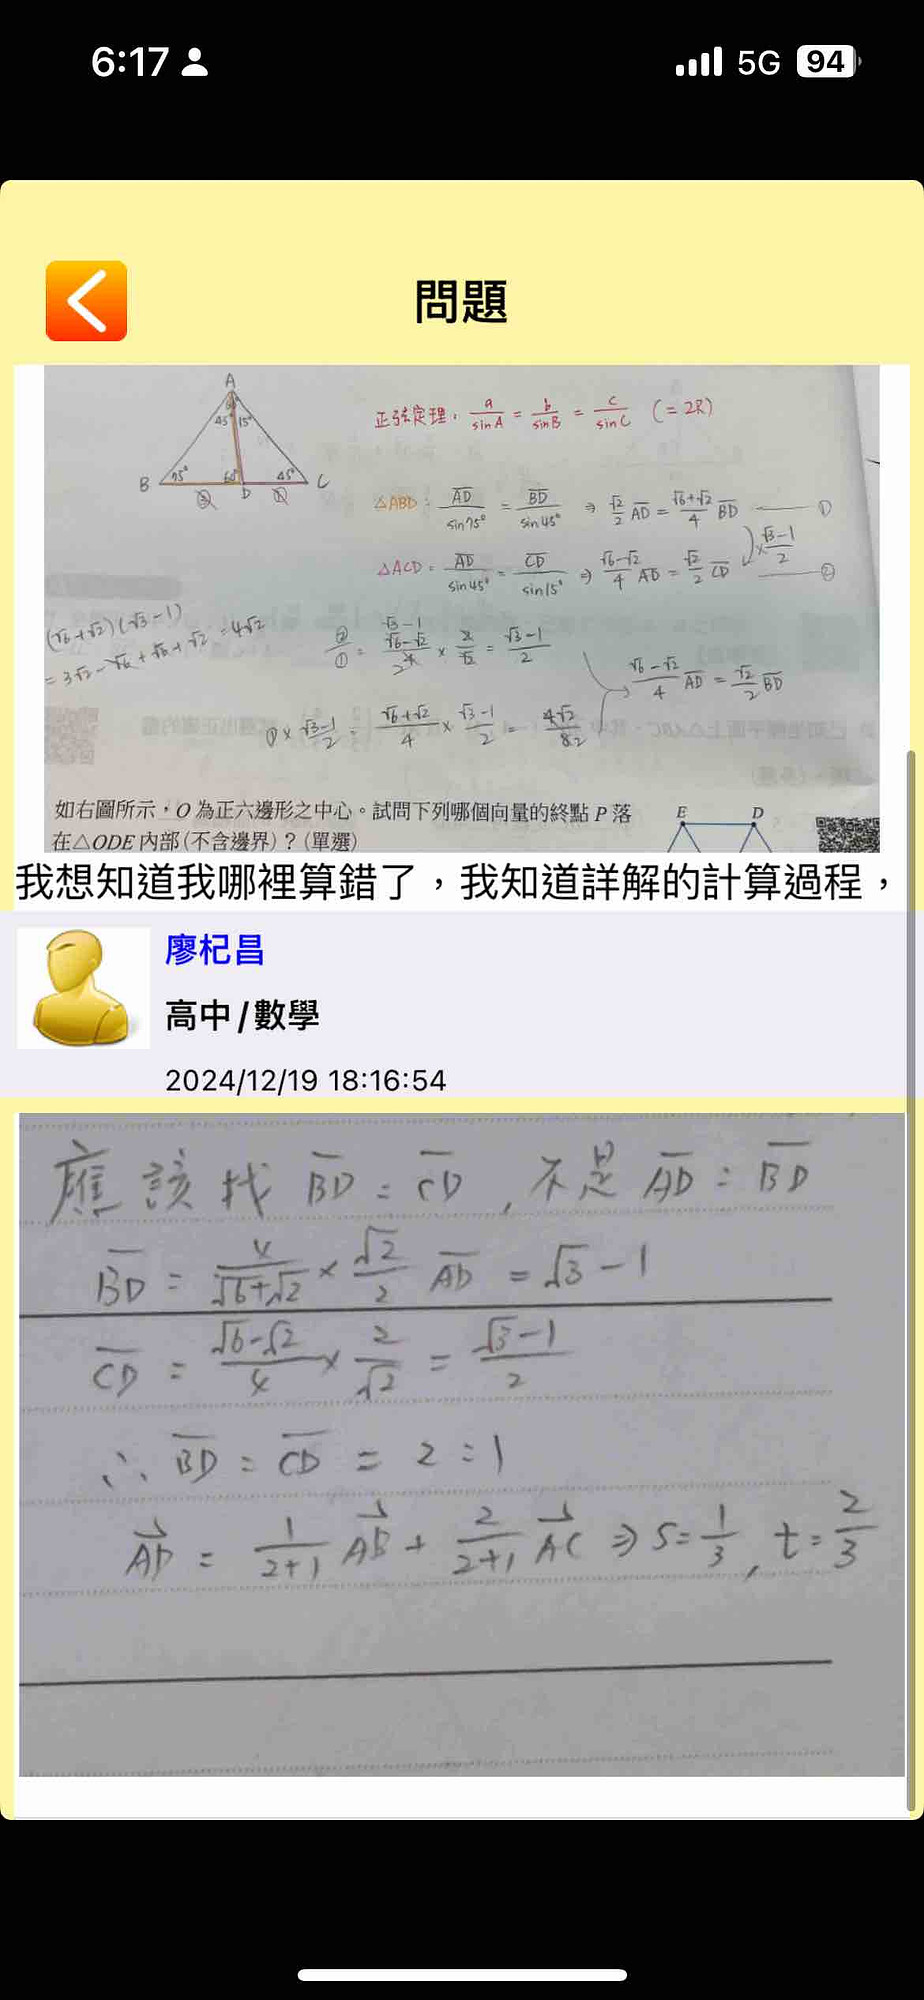 6:17
5G 94
問題
A
45° 15°
B 75° 60° D 45° C
② ①
正弦定理: a/sinA = b/sinB = c/sinC (=2R)
△ABD: AD/sin75° = BD/sin45° ⇒ √2/2 AD = (√6+√2)/4 BD —— ①
×(√3-1)/2
△ACD: AD/sin45° = CD/sin15° ⇒ (√6-√2)/4 AD = √2/2 CD —— ②
(√6+√2)(√3-1)
= 3√2-√6+√6-√2 = 4√2
②/① = (√6-√2)/4 × 2/√2 = (√3-1)/2
(√6-√2)/4 AD = √2/2 BD
①×(√3-1)/2 = (√6+√2)/4 × (√3-1)/2 = 4√2/8
如右圖所示，O 為正六邊形之中心。試問下列哪個向量的終點 P 落
在△ODE 內部(不含邊界)？(單選)
E D
我想知道我哪裡算錯了，我知道詳解的計算過程，
廖杞昌
高中/數學
2024/12/19 18:16:54
應該找 BD:CD, 不是 AD:BD
BD = 4/(√6+√2) × √2/2 AD = √3-1
CD = (√6-√2)/4 × 2/√2 = (√3-1)/2
∴ BD:CD = 2:1
AD = 1/(2+1) AB + 2/(2+1) AC ⇒ s=1/3, t=2/3